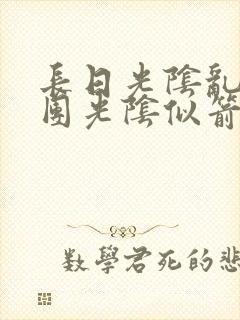 長日光陰亂
團光陰似箭
數學君死的悲